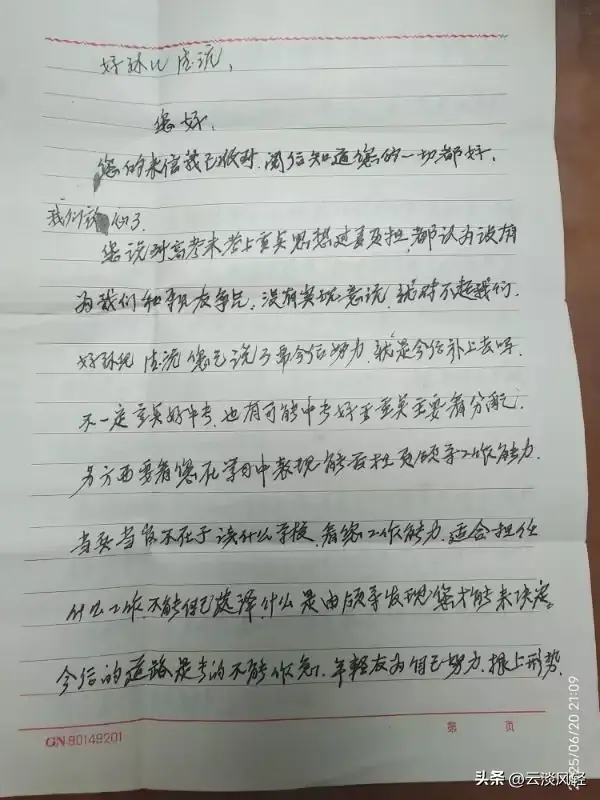 好孙儿
您好,
您的来信我已收到,阅信知道您的一切都好,
我们放心了.
您说到高考未考上重点思想过责负担,都认为没有
为我们和亲友争光,没有实现意说,对不起我们.
好孙儿 您也说了要今后努力,就是今后补上去吗,
不一定重点好中专,也有可能中专好重点主要看分配,
另方面要看您在学习中表现能否担负领导工作能力.
当兵当官不在于读什么学校,看您工作能力,适合担任
什么工作,不能自己选择,什么是由领导发现您才能来决定,
今后的道路是长的不能作急,年轻友为自己努力,跟上形势,
GN-90149201
第 页
2025/06/20 21:09
头条 @云淡风轻